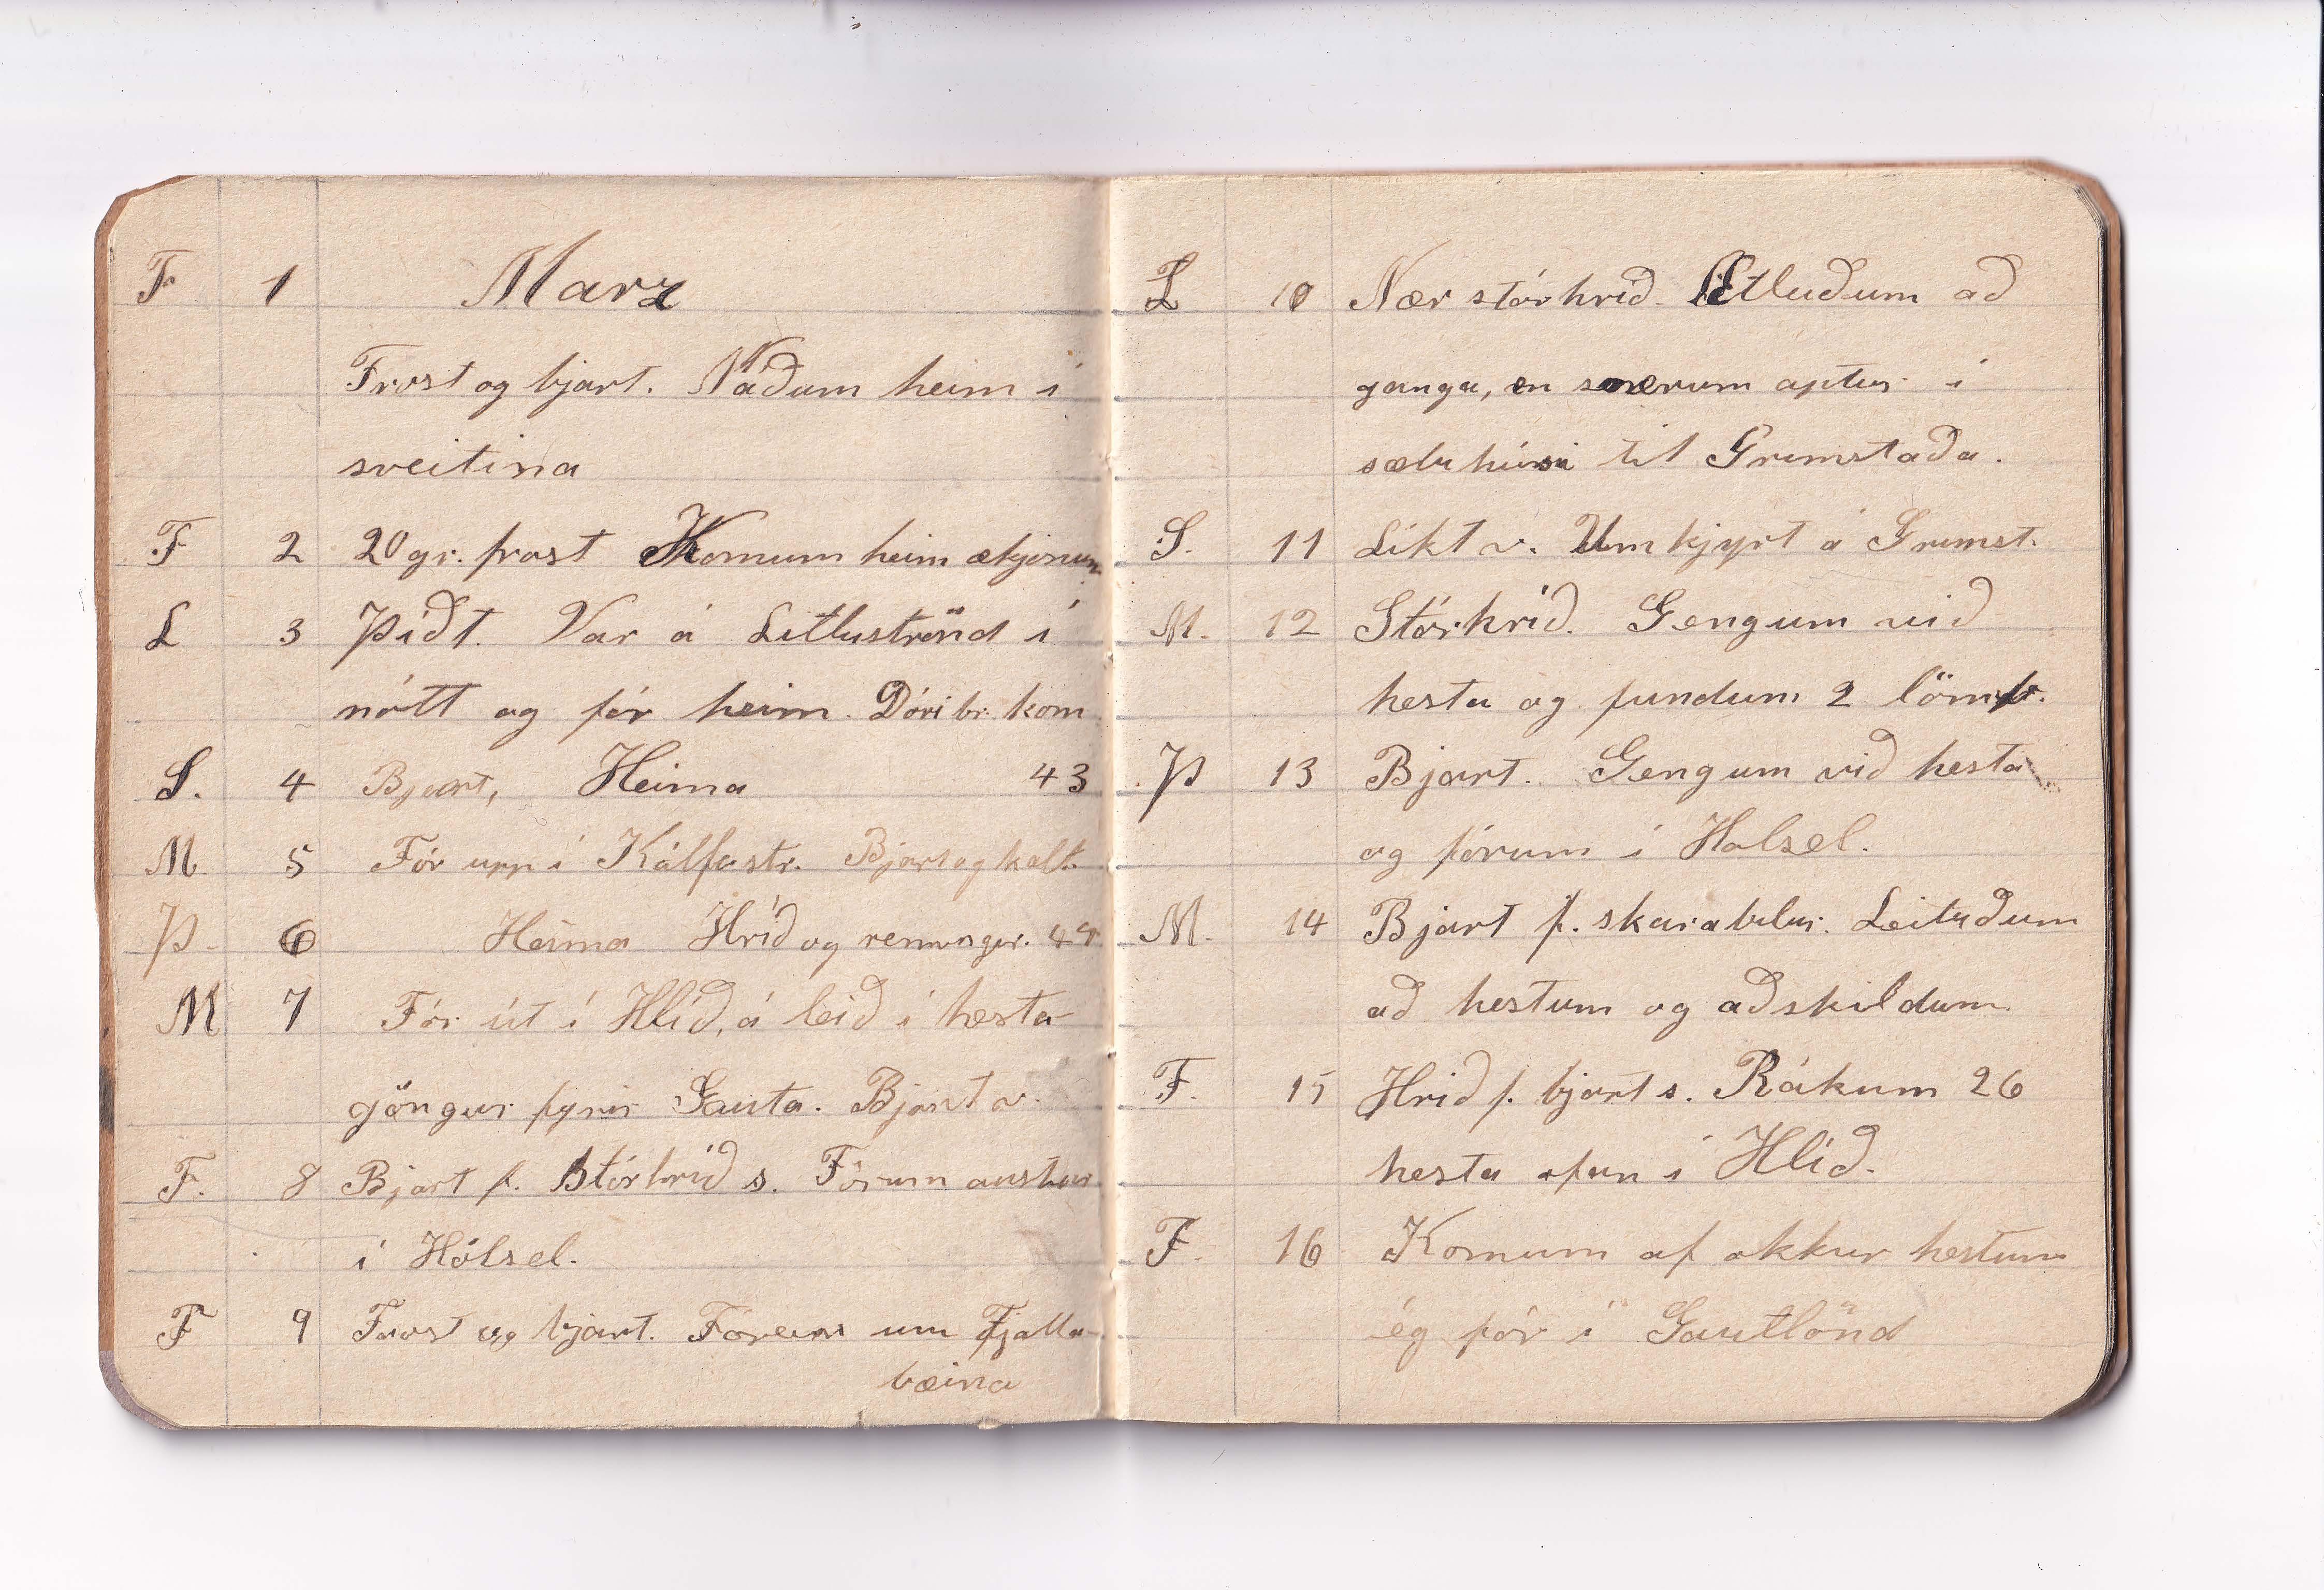 F 1 Marz
Frost og bjart. Náðum heim í
sveitina
F 2 20 gr. frost Komum heim ækjonum
L 3 Þiðt. Var á Litluströnd í
nótt og fór heim. Dóri br. kom
S. 4 Bjart, Heima 43
M 5 Fór upp í Kálfastr. Bjart og kalt.
Þ. 6 Heima Hríð og renningur. 44
M 7 Fór út í Hlíð, á leið í hesta-
göngur fyrir Gauta. Bjart v.
F. 8 Bjart f. Stórhríð s. Fórum austur
í Hólsel.
F 9 Frost og bjart. Fórum um Fjalla-
bæina
L 10 Nær stórhríð. Ætluðum að
ganga, en snerum aptur í
sæluhúsi til Grimstaða.
S. 11 Líkt v. Um kjyrt á Grimst.
M. 12 Stórhríð. Gengum við
hesta og fundum 2 lömb.
Þ 13 Bjart. Gengum við hesta
og fórum í Holsel.
M. 14 Bjart f. skarabilur. Leituðum
að hestum og aðskildum
F. 15 Hríð f. bjart s. Rákum 26
hesta ofan í Hlíð.
F. 16 Komum af okkur hestum
ég fór í Gautlönd